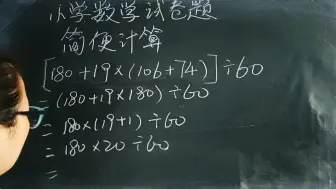 小学数学试卷题
简便计算
[180+19×(106+74)]÷60
=(180+19×180)÷60
=180×(19+1)÷60
=180×20÷60
=